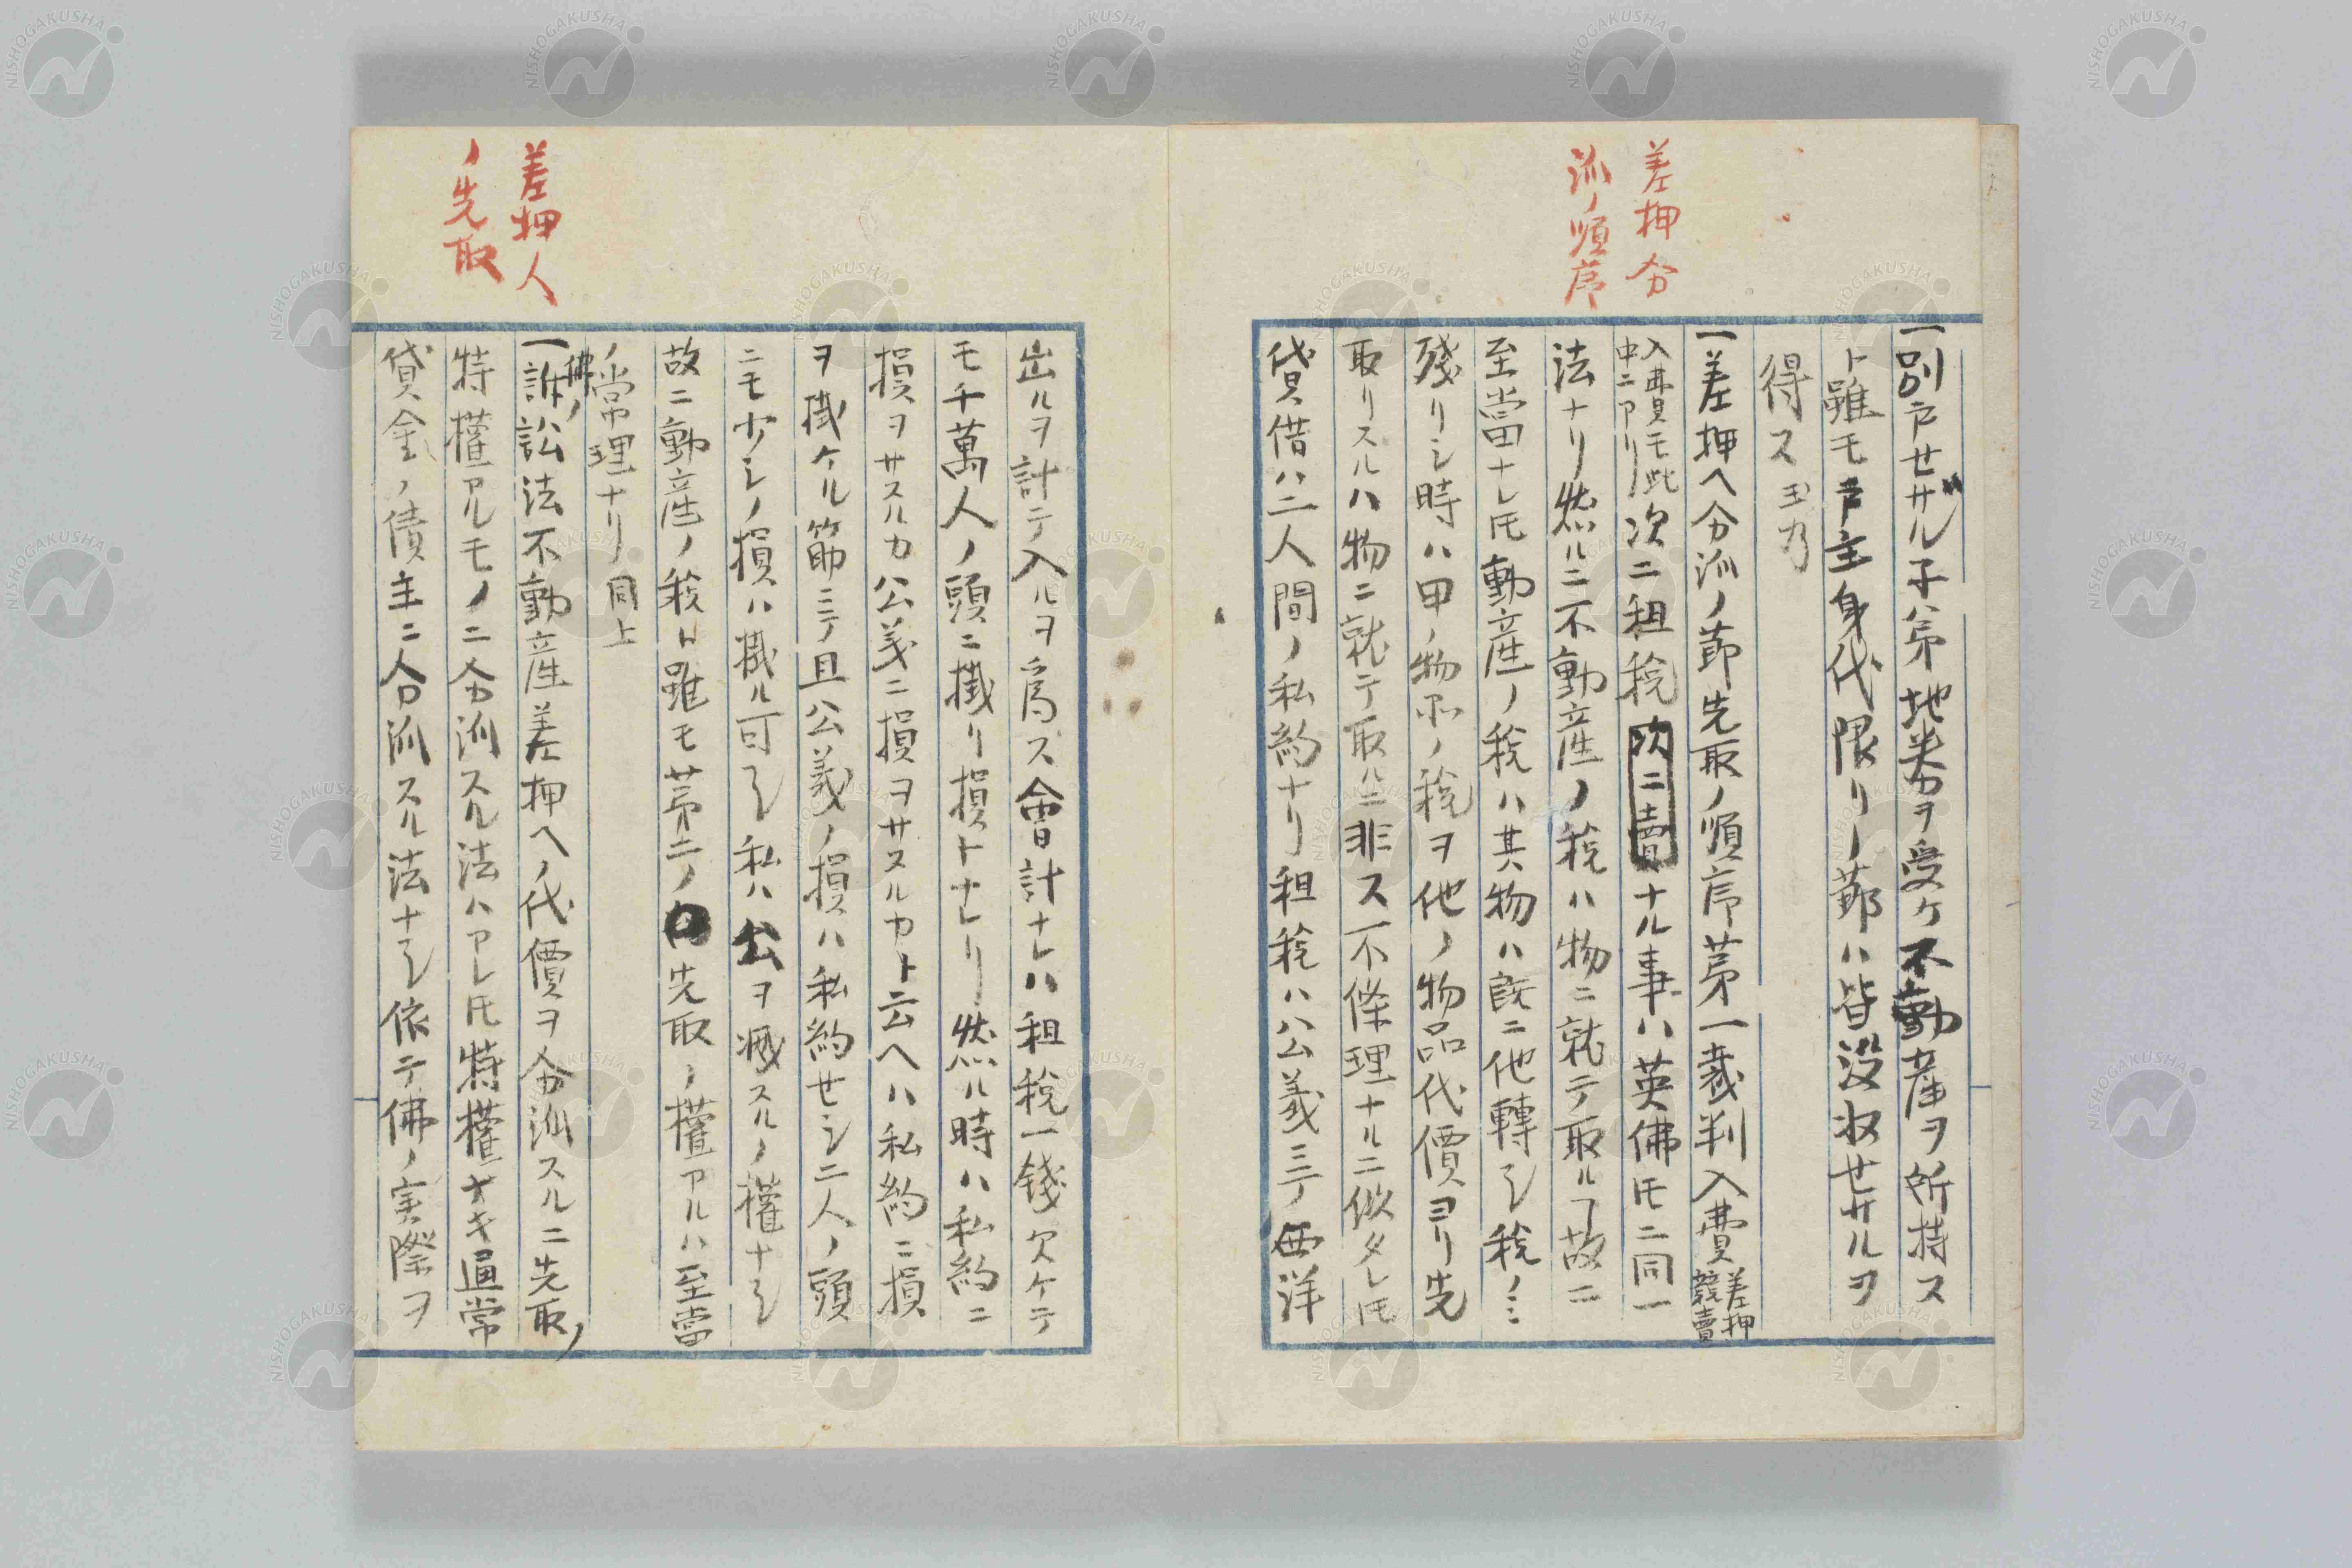 差押分
派ノ順序
一別戸セザル子ハ第地券ヲ受ケ不動産ヲ所持ス
ト雖モ戸主身代限リノ節ハ皆没収セサルヲ
得ス 玉乃
一差押ヘ分派ノ節先取ノ順序第一裁判入費差押競賣
入費モ此中ニアリ次ニ租税次ニ賣ナル事ハ英佛トモニ同一
法ナリ然ルニ不動産ノ税ハ物ニ就テ取ルヿ故ニ
至當ナレ𪜈動産ノ税ハ其物ハ既ニ他轉シ税ノミ
残リシ時ハ甲ノ物品ノ税ヲ他ノ物品代價ヨリ先
取リスルハ物ニ就テ取ルニ非ス不條理ナルニ似タレ𪜈
貸借ハ二人間ノ私約ナリ租税ハ公義ニテ西洋
差押人
ノ先取
出ルヲ計テ入ルヲ為ス會計ナレハ租税一錢欠ケテ
モ千萬人ノ頭ニ掛リ損トナレリ然ル時ハ私約ニ
損ヲサスルカ公義ニ損ヲサスルカト云ヘハ私約ニ損
ヲ掛ケル筋ニテ且公義ノ損ハ私約セシ二人ノ頭
ニモ少シノ損ハ掛ル可シ私ハ公ヲ滅スルノ權ナシ
故ニ動産ノ税ト雖モ第二ノ先取ノ權アルハ至當
ノ常理ナリ 同上
一佛ノ訴訟法不動産差押ヘノ代價ヲ分派スルニ先取ノ
特權アルモノニ分派スル法ハアレ𪜈特權ナキ通常
貸金ノ債主ニ分派スル法ナシ依テ佛ノ実際ヲ
NISHOGAKUSHA